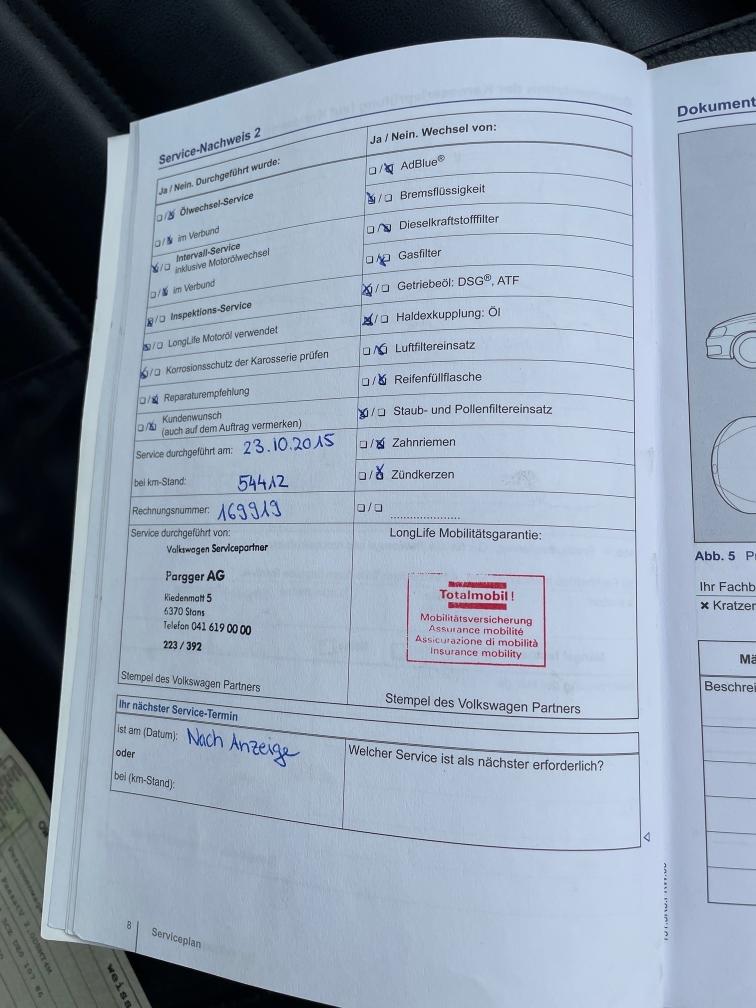 Service-Nachweis 2
Ja / Nein. Durchgeführt wurde:
Ölwechsel-Service
im Verbund
Intervall-Service
inklusive Motorölwechsel
im Verbund
Inspektions-Service
LongLife Motoröl verwendet
Korrosionsschutz der Karosserie prüfen
Reparaturempfehlung
Kundenwunsch
(auch auf dem Auftrag vermerken)
Service durchgeführt am: 23.10.2015
bei km-Stand: 54412
Rechnungsnummer: 169919
Service durchgeführt von:
Volkswagen Servicepartner
Pargger AG
Riedenmatt 5
6370 Stans
Telefon 041 619 00 00
223 / 392
Stempel des Volkswagen Partners
Ja / Nein. Wechsel von:
AdBlue®
Bremsflüssigkeit
Dieselkraftstofffilter
Gasfilter
Getriebeöl: DSG®, ATF
Haldexkupplung: Öl
Luftfiltereinsatz
Reifenfüllflasche
Staub- und Pollenfiltereinsatz
Zahnriemen
Zündkerzen
LongLife Mobilitätsgarantie:
Totalmobil!
Mobilitätsversicherung
Assurance mobilité
Assicurazione di mobilità
Insurance mobility
Stempel des Volkswagen Partners
Ihr nächster Service-Termin
ist am (Datum): Nach Anzeige
oder
bei (km-Stand):
Welcher Service ist als nächster erforderlich?
8 Serviceplan
Dokument
Abb. 5
Ihr Fachb
× Kratzer
Mä
Beschrei
weiss